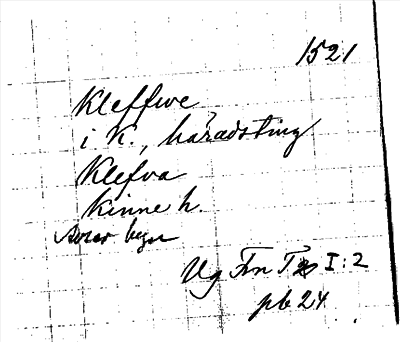 1521
Kleffwe
i K., häradsting
Klefva
Kinne h.
Ug Fm T I:2
pb 24